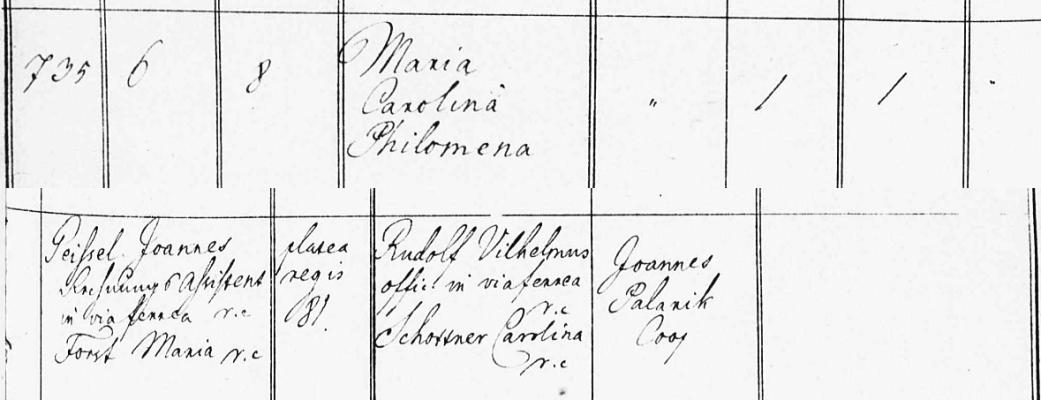 735 6 8 Maria " / / "
Carolina
Philomena
Geissel Joannes
Rechnungs Assistent
in via ferrea r.c
Forst Maria r.c
platea
regis
81.
Rudolf Vilhelmus
offic. in via ferrea
r.c
Schottner Carolina
r.c
Joannes
Palarik
Coop